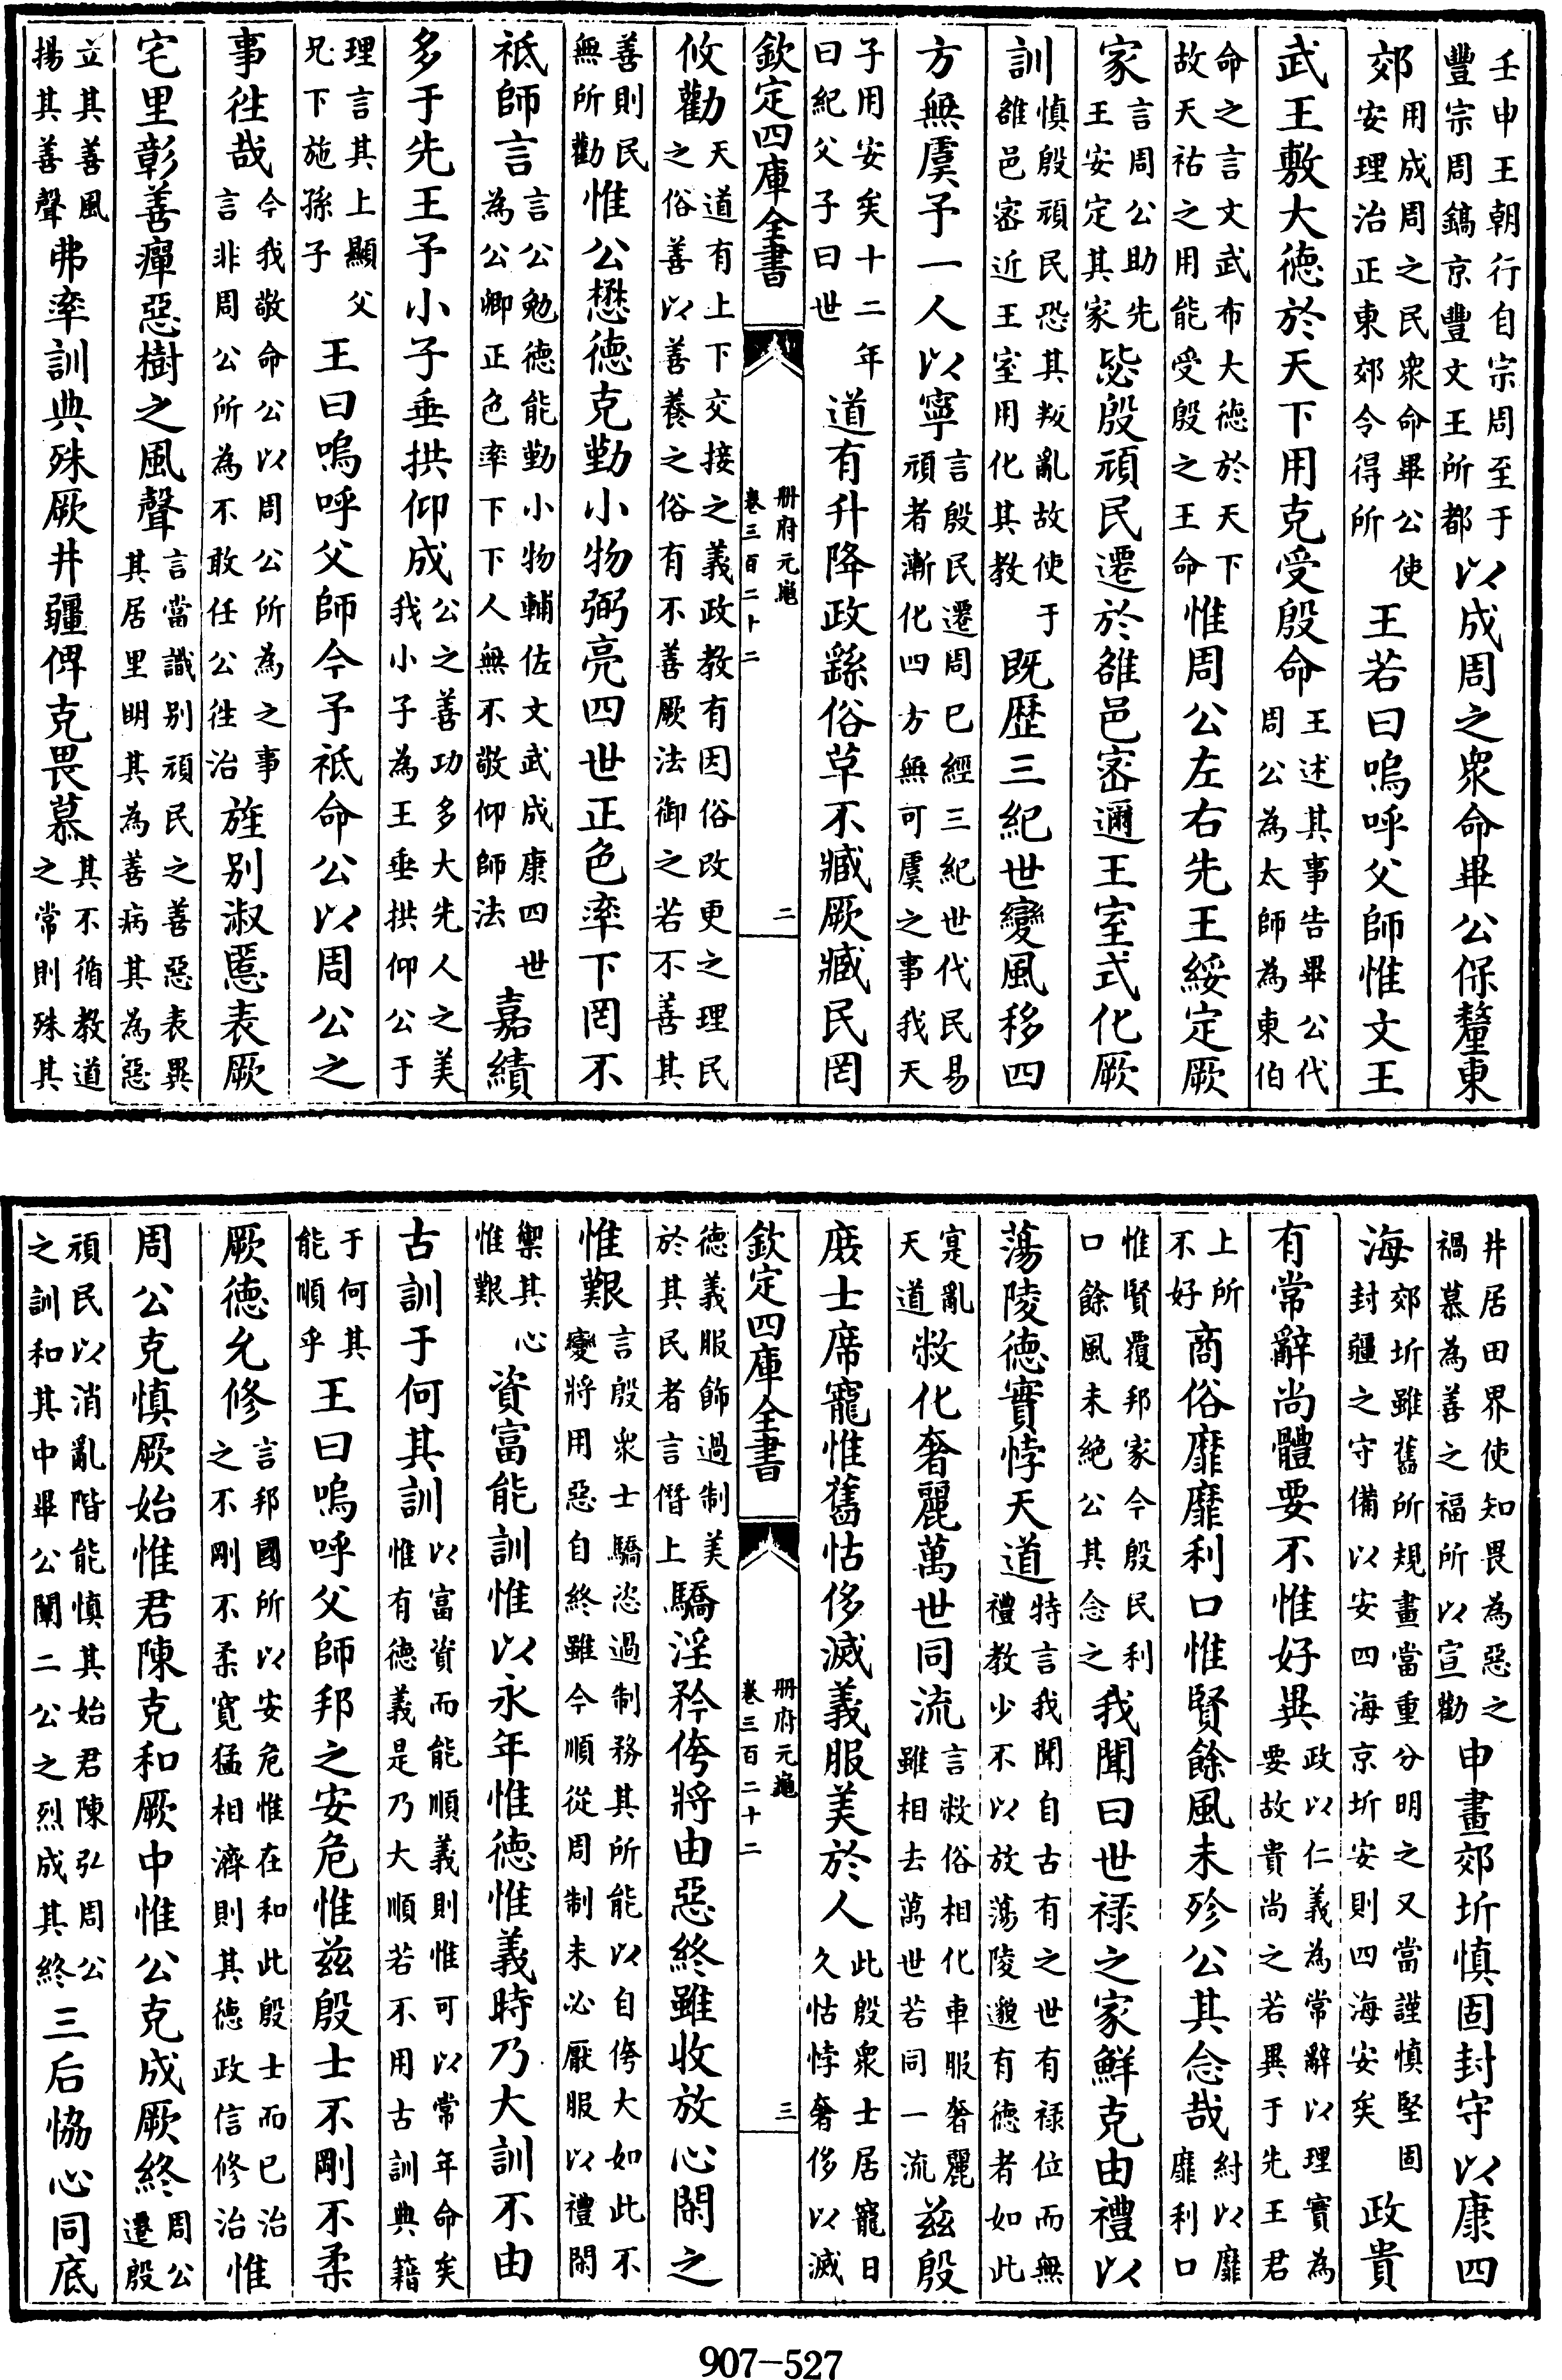 壬申王朝行自宗周至于豐宗周鎬京豐文王所都以成周之衆命畢公保釐東
郊用成周之民衆命畢公使安理治正東郊令得所王若曰嗚呼父師惟文王
武王敷大德於天下用克受殷命王述其事告畢公代周公為太師為東伯
命之言文武布大德於天下故天祐之用能受殷之王命惟周公左右先王綏定厥
家言周公助先王安定其家毖殷頑民遷於雒邑密邇王室式化厥
訓慎殷頑民恐其叛亂故使于雒邑密近王室用化其教既歴三紀世變風移四
方無虞予一人以寧言殷民遷周已經三紀世代民易頑者漸化四方無可虞之事我天
子用安矣十二年曰紀父子曰世道有升降政繇俗革不臧厥臧民罔
欽定四庫全書 册府元龜 卷三百二十二 二
攸勸天道有上下交接之義政教有因俗改更之理民之俗善以善養之俗有不善厥法御之若不善其
善則民無所勸惟公懋德克勤小物弼亮四世正色率下罔不
祗師言言公勉德能勤小物輔佐文武成康四世為公卿正色率下下人無不敬仰師法嘉績
多于先王予小子垂拱仰成公之善功多大先人之美我小子為王垂拱仰公于
理言其上顯父兄下施孫子王曰嗚呼父師今予祗命公以周公之
事徃哉今我敬命公以周公所為之事言非周公所為不敢任公徃治旌别淑慝表厥
宅里彰善癉惡樹之風聲言當識别頑民之善惡表異其居里明其為善病其為惡
立其善風揚其善聲弗率訓典殊厥井疆俾克畏慕其不循教道之常則殊其
井居田界使知畏為惡之禍慕為善之福所以宣勸申畫郊圻慎固封守以康四
海郊圻雖舊所規畫當重分明之又當謹慎堅固封疆之守備以安四海京圻安則四海安矣政貴
有常辭尚體要不惟好異政以仁義為常辭以理實為要故貴尚之若異于先王君
上所不好商俗靡靡利口惟賢餘風未殄公其念哉紂以靡靡利口
惟賢覆邦家今殷民利口餘風未絶公其念之我聞曰世禄之家鮮克由禮以
蕩陵德實悖天道特言我聞自古有之世有禄位而無禮教少不以放蕩陵邈有德者如此
寔亂天道敝化奢麗萬世同流言敝俗相化車服奢麗雖相去萬世若同一流兹殷
庶士席寵惟舊怙侈滅義服美於人此殷衆士居寵日久怙悖奢侈以滅
欽定四庫全書 册府元龜 卷三百二十二 三
德義服飾過制美於其民者言僭上驕淫矜侉將由惡終雖收放心閑之
惟艱言殷衆士驕恣過制務其所能以自侉大如此不變將用惡自終雖今順從周制未必厭服以禮閑
禦其心惟艱資富能訓惟以永年惟德惟義時乃大訓不由
古訓于何其訓以富資而能順義則惟可以常年命矣惟有德義是乃大順若不用古訓典籍
于何其能順乎王曰嗚呼父師邦之安危惟兹殷士不剛不柔
厥德允修言邦國所以安危惟在和此殷士而已治之不剛不柔寛猛相濟則其德政信修治惟
周公克慎厥始惟君陳克和厥中惟公克成厥終周公遷殷
頑民以消亂階能慎其始君陳弘周公之訓和其中畢公闡二公之烈成其終三后恊心同底
907-527